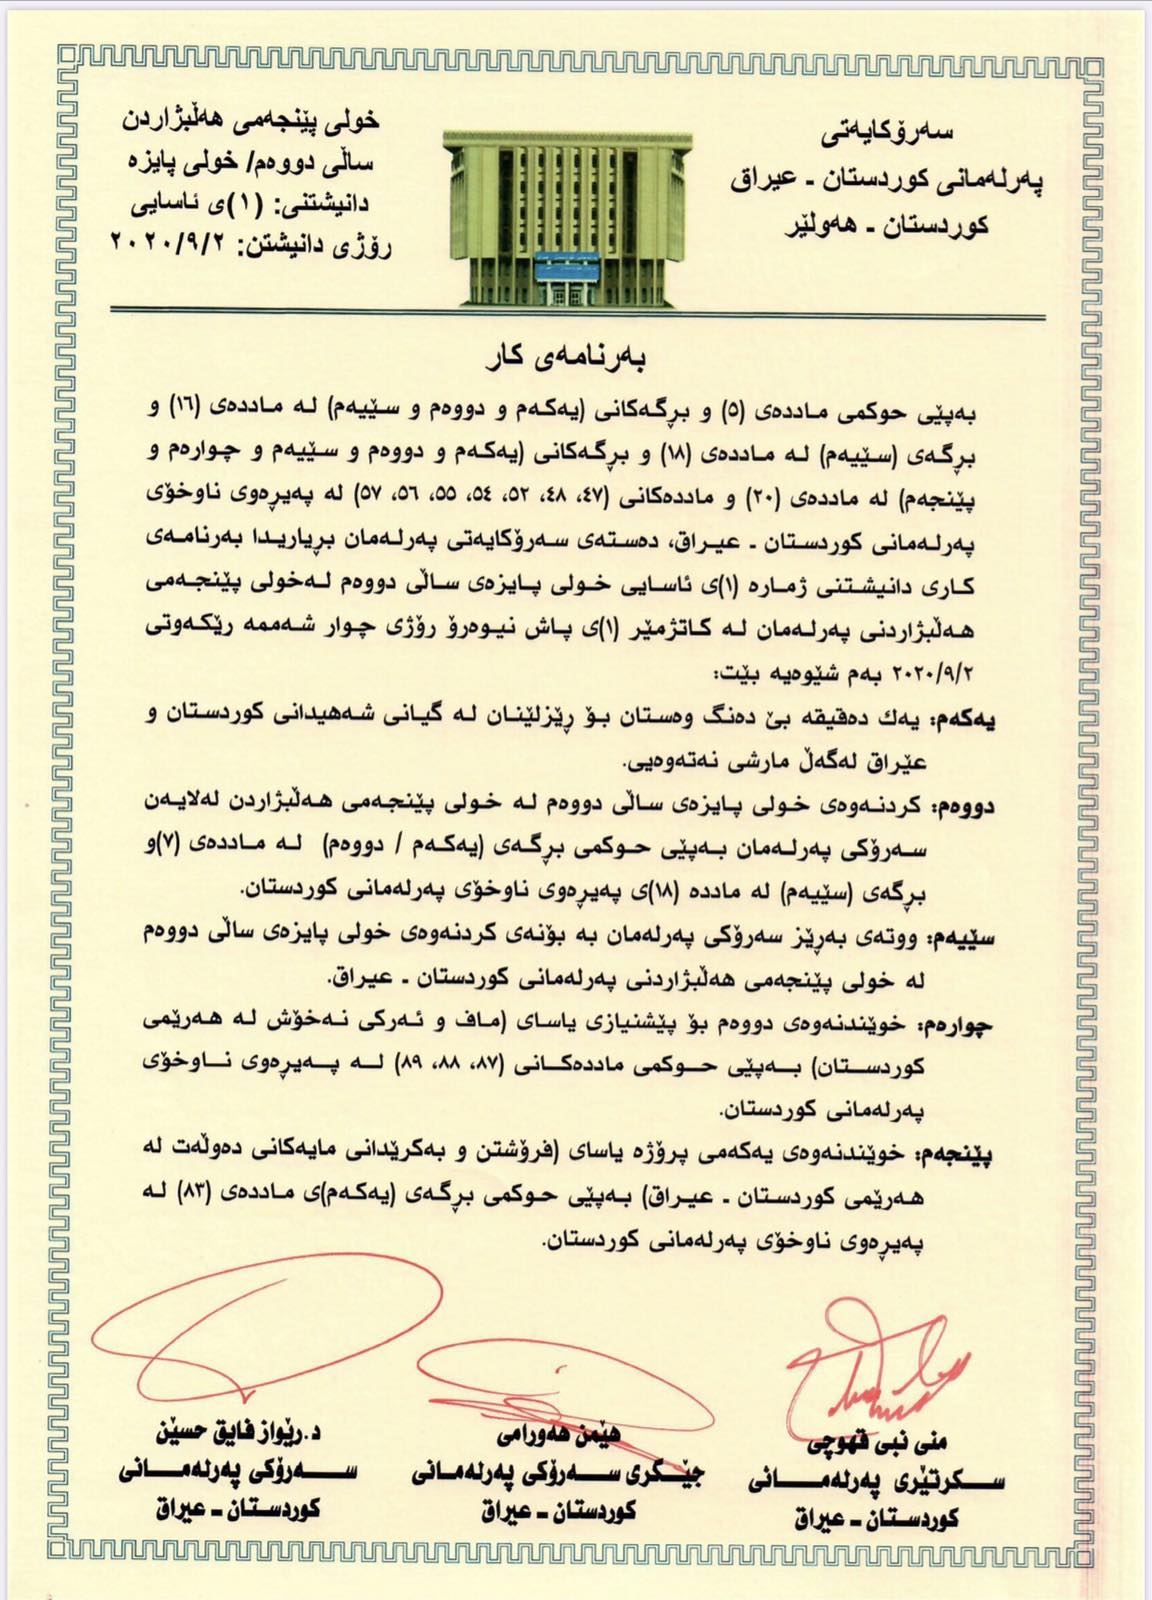 سەرۆکایەتی
پەرلەمانی کوردستان ـ عیراق
کوردستان ـ هەولێر
خولی پێنجەمی هەڵبژاردن
ساڵی دووەم/ خولی پایزە
دانیشتنی: (١)ی ئاسایی
رۆژی دانیشتن: ٢٠٢٠/٩/٢
بەرنامەی کار
بەپێی حوکمی ماددەی (٥) و بڕگەکانی (یەکەم و دووەم و سێیەم) لە ماددەی (١٦) و
بڕگەی (سێیەم) لە ماددەی (١٨) و بڕگەکانی (یەکەم و دووەم و سێیەم و چوارەم و
پێنجەم) لە ماددەی (٢٠) و ماددەکانی (٤٧، ٤٨، ٥٢، ٥٤، ٥٥، ٥٦، ٥٧) لە پەیڕەوی ناوخۆی
پەرلەمانی کوردستان ـ عیراق، دەستەی سەرۆکایەتی پەرلەمان بڕیاریدا بەرنامەی
کاری دانیشتنی ژمارە (١)ی ئاسایی خولی پایزەی ساڵی دووەم لەخولی پێنجەمی
هەڵبژاردنی پەرلەمان لە کاتژمێر (١)ی پاش نیوەرۆ رۆژی چوار شەممە رێکەوتی
٢٠٢٠/٩/٢ بەم شێوەیە بێت:
یەکەم: یەك دەقیقە بێ دەنگ وەستان بۆ ڕێزلێنان لە گیانی شەهیدانی کوردستان و
عێراق لەگەڵ مارشی نەتەوەیی.
دووەم: کردنەوەی خولی پایزەی ساڵی دووەم لە خولی پێنجەمی هەڵبژاردن لەلایەن
سەرۆکی پەرلەمان بەپێی حوکمی بڕگەی (یەکەم / دووەم) لە ماددەی (٧)و
بڕگەی (سێیەم) لە ماددە (١٨)ی پەیڕەوی ناوخۆی پەرلەمانی کوردستان.
سێیەم: ووتەی بەڕێز سەرۆکی پەرلەمان بە بۆنەی کردنەوەی خولی پایزەی ساڵی دووەم
لە خولی پێنجەمی هەڵبژاردنی پەرلەمانی کوردستان ـ عیراق.
چوارەم: خوێندنەوەی دووەم بۆ پێشنیازی یاسای (ماف و ئەرکی نەخۆش لە هەرێمی
کوردستان) بەپێی حوکمی ماددەکانی (٨٧، ٨٨، ٨٩) لە پەیڕەوی ناوخۆی
پەرلەمانی کوردستان.
پێنجەم: خوێندنەوەی یەکەمی پرۆژە یاسای (فرۆشتن و بەکرێدانی مایەکانی دەوڵەت لە
هەرێمی کوردستان ـ عیراق) بەپێی حوکمی بڕگەی (یەکەم)ی ماددەی (٨٣) لە
پەیڕەوی ناوخۆی پەرلەمانی کوردستان.
منی نبی قهوچی
سکرتێری پەرلەمانی
کوردستان ـ عیراق
هێمن هەورامی
جێگری سەرۆکی پەرلەمانی
کوردستان ـ عیراق
د.رێواز فایق حسێن
سەرۆکی پەرلەمانی
کوردستان ـ عیراق